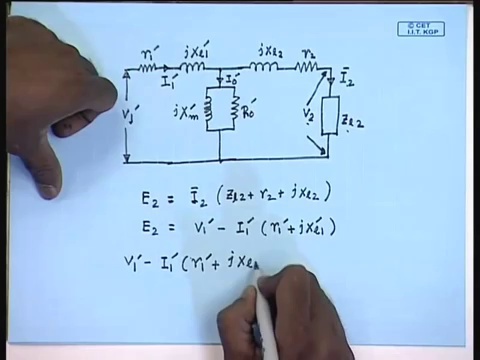 © CET
I.I.T. KGP
r₁′ jxℓ₁′ jxℓ₂ r₂
I₁′ I₀′ Ī₂
V₁′ jXm′ R₀′ V₂ Zℓ₂
E₂ = Ī₂ (Zℓ₂ + r₂ + jxℓ₂)
E₂ = V₁′ − I₁′ (r₁′ + jxℓ₁′)
V₁′ − I₁′ (r₁′ + jxℓ